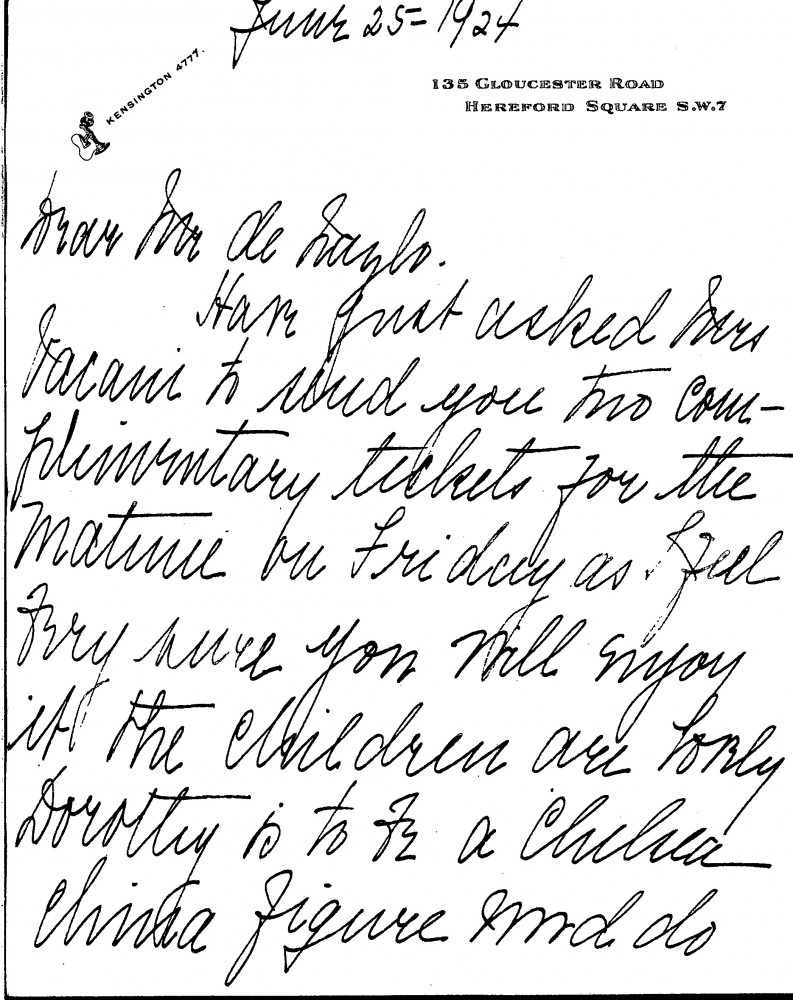 June 25 = 1924
KENSINGTON 4777.
135 GLOUCESTER ROAD
HEREFORD SQUARE S.W.7
Dear Mr de
Have just asked Mrs
Vacani to send you two com-
plimentary tickets for the
Matinee on Friday as I feel
very sure you will enjoy
it the children are lovely
Dorothy is to be a Chelsea
China figure and do